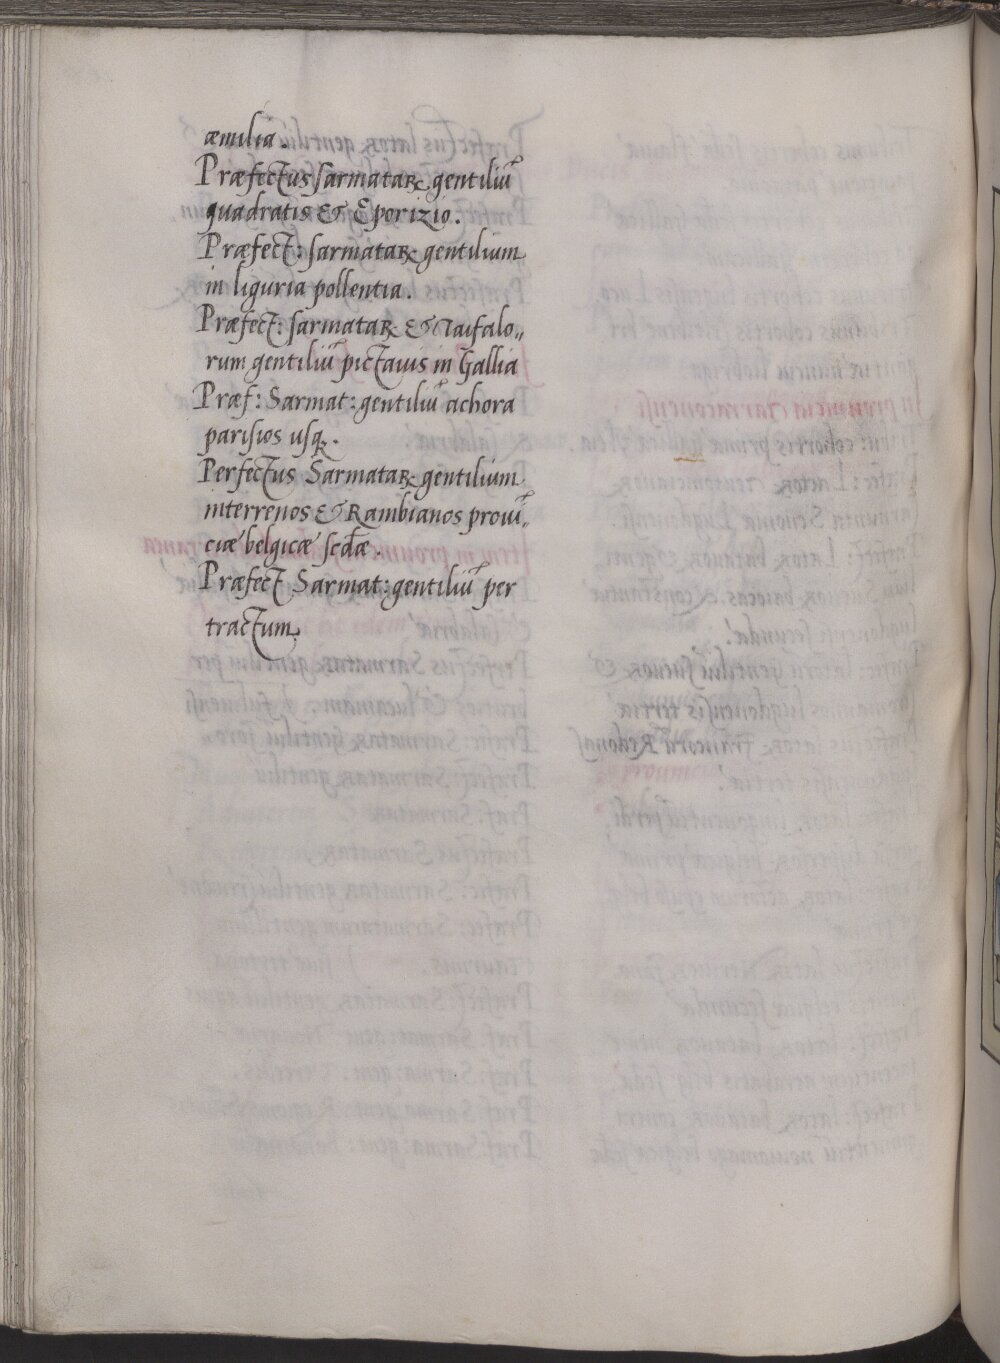 æmilia.
Præfectus sarmataꝝ gentiliū
quadratis & Eporizio.
Præfect: sarmataꝝ gentilium
in liguria pollentia.
Præfect: sarmataꝝ & Taifalo„
rum gentiliū pictauis in Gallia
Præf: Sarmat: gentiliū achora
parisios usq.
Perfectus Sarmataꝝ gentilium
interrenos & Rambianos prouī„
ciæ belgicæ scdæ.
Præfect Sarmat: gentiliū per
tractum